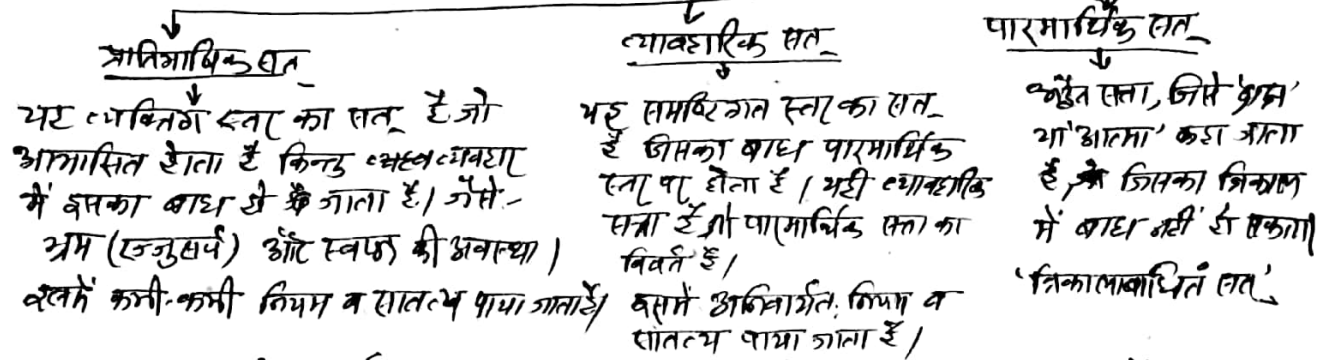 प्रातिभाषिक सत्
यह व्यक्तिगत स्तर का सत् है जो
आभासित होता है किन्तु व्यवहार
में इसका बाध हो जाता है। जैसे:-
भ्रम (रज्जुसर्प) और स्वप्न की अवस्था।
इसमें कभी-कभी नियम व सातत्य पाया जाता है।
व्यावहारिक सत्
यह समष्टिगत स्तर का सत्
है जिसका बाध पारमार्थिक
स्तर पर होता है। यही व्यावहारिक
सत्ता है जो पारमार्थिक सत्ता का
विवर्त है।
इसमें अनिवार्यत: नियम व
सातत्य पाया जाता है।
पारमार्थिक सत्
अद्वैत सत्ता, जिसे 'ब्रह्म'
या 'आत्मा' कहा जाता
है, जिसका त्रिकाल
में बाध नहीं हो सकता।
'त्रिकालाबाधितं सत्'